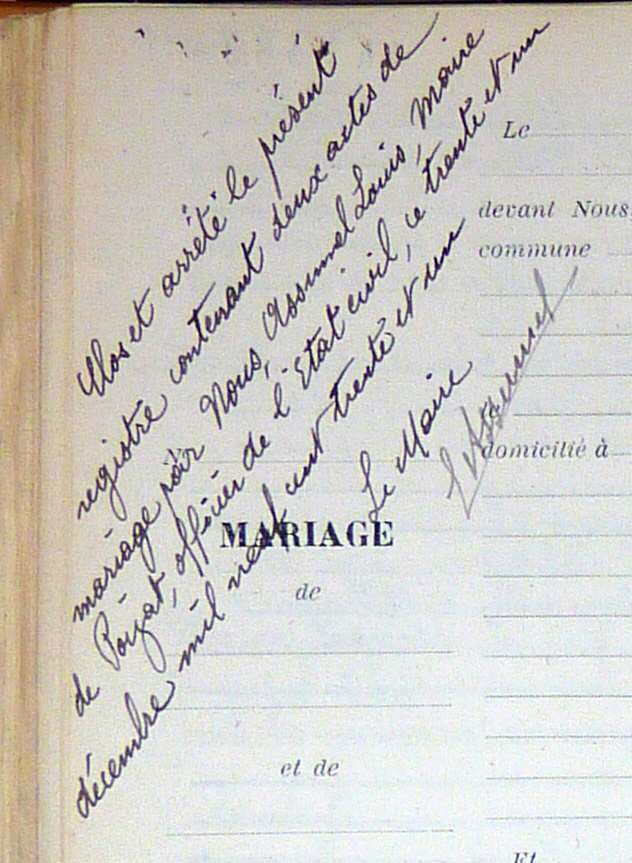 Clos et arrêté le présent
registre contenant deux actes de
mariage par Nous, Assumel Louis, Maire
de Poizat, officier de l'Etat civil, ce trente et un
décembre mil neuf cent trente et un
Le Maire
L Assumel
N
MARIAGE
de
et de
Le
devant Nous
commune
domicilié à
Et